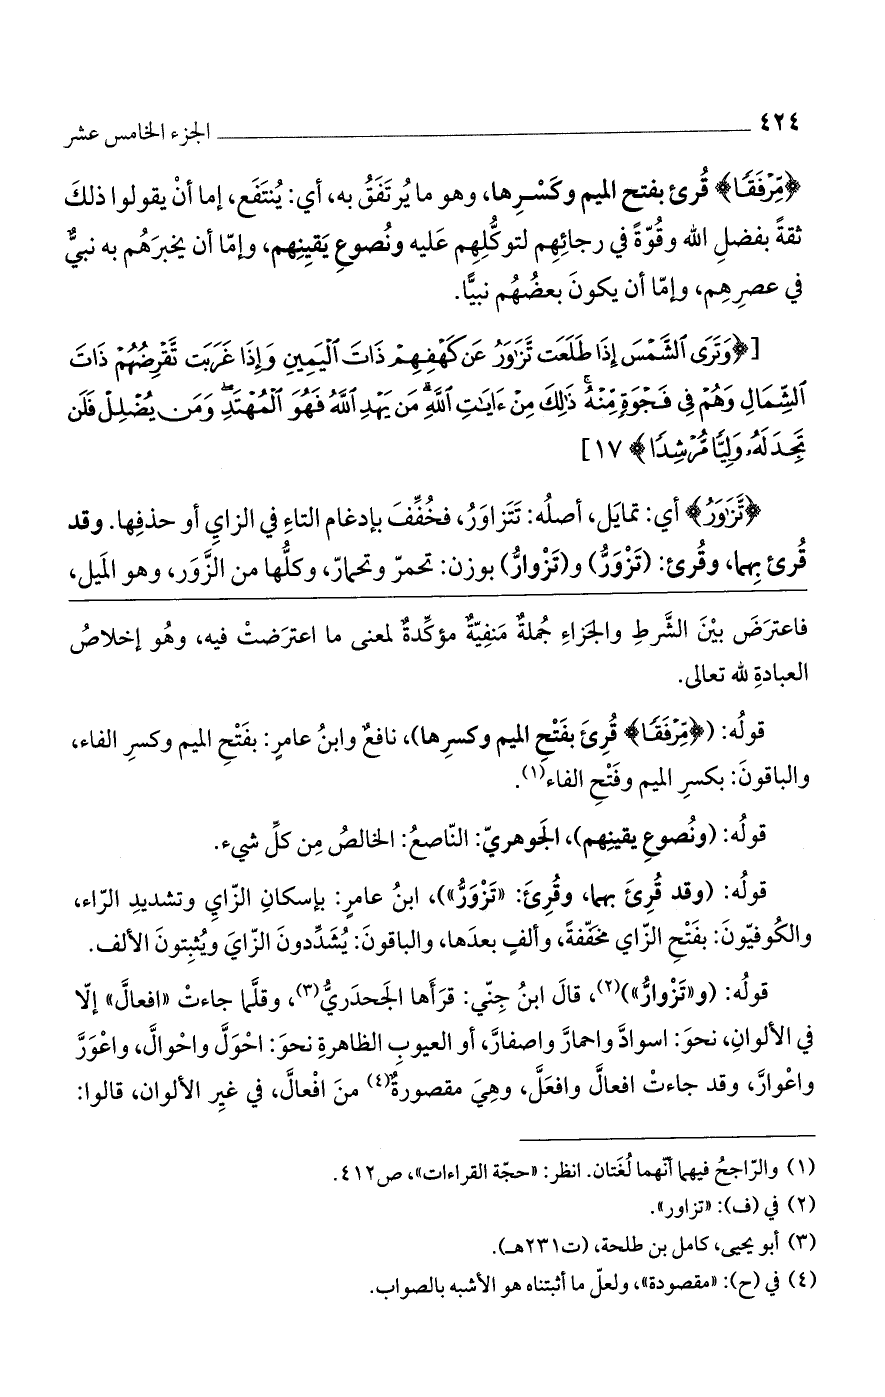 ٤٢٤ الجزء الخامس عشر
﴿مِّرْفَقًا﴾ قُرئ بفتح الميم وكَسْرِها، وهو ما يُرتَفَقُ به، أي: يُنتَفَع، إما أنْ يقولوا ذلكَ
ثقةً بفضلِ الله وقُوّةً في رجائِهِم لتوكُّلِهِم عَليه ونُصوعِ يَقينِهِم، وإمّا أن يخبرَهُم به نبيٌّ
في عصرِهِم، وإمّا أن يكونَ بعضُهُم نبيًّا.
[﴿وَتَرَى ٱلشَّمْسَ إِذَا طَلَعَت تَّزَٰوَرُ عَن كَهْفِهِمْ ذَاتَ ٱلْيَمِينِ وَإِذَا غَرَبَت تَّقْرِضُهُمْ ذَاتَ
ٱلشِّمَالِ وَهُمْ فِى فَجْوَةٍ مِّنْهُ ۚ ذَٰلِكَ مِنْ ءَايَٰتِ ٱللَّهِ ۗ مَن يَهْدِ ٱللَّهُ فَهُوَ ٱلْمُهْتَدِ ۖ وَمَن يُضْلِلْ فَلَن
تَجِدَ لَهُۥ وَلِيًّا مُّرْشِدًا﴾ ١٧]
﴿تَّزَٰوَرُ﴾ أي: تمايَل، أصلُه: تَتَزاوَرُ، فخُفِّفَ بإدغام التاءِ في الزايِ أو حذفِها. وقد
قُرئ بِهما، وقُرئ: (تَزْوَرُّ) و(تَزْوارُّ) بوزن: تحمرّ وتحمارّ، وكلُّها من الزَّوَر، وهو المَيل،
فاعترَضَ بيْنَ الشَّرطِ والجَزاءِ جُملةٌ مَنفِيّةٌ مؤكِّدةٌ لمعنى ما اعترَضتْ فيه، وهُو إخلاصُ
العبادةِ لله تعالى.
قولُه: (﴿مِّرْفَقًا﴾ قُرِئَ بفَتْحِ الميم وكسرِها)، نافعٌ وابنُ عامرٍ: بفَتْحِ الميم وكسرِ الفاء،
والباقونَ: بكسرِ الميم وفَتْحِ الفاء(١).
قولُه: (ونُصوعِ يقينِهم)، الجَوهريّ: النّاصعُ: الخالصُ مِن كلِّ شيء.
قولُه: (وقد قُرِئَ بهما، وقُرِئَ: «تَزْوَرُّ»)، ابنُ عامرٍ: بإسكانِ الزّايِ وتشديدِ الرّاء،
والكُوفيّونَ: بفَتْحِ الزّاي مخَفّفةً، وألفٍ بعدَها، والباقونَ: يُشدِّدونَ الزّايَ ويُثبِتونَ الألف.
قولُه: (و«تَزْوارُّ»)(٢)، قالَ ابنُ جِنّي: قرَأها الجَحدَريُّ(٣)، وقلَّما جاءتْ «افعالَّ» إلّا
في الألوانِ، نحوَ: اسوادَّ واحمارَّ واصفارَّ، أو العيوبِ الظاهرةِ نحوَ: احْوَلَّ واحْوالَّ، واعْوَرَّ
واعْوارَّ، وقد جاءتْ افعالَّ وافعَلَّ، وهِيَ مقصورةٌ(٤) منَ افْعالَّ، في غيرِ الألوان، قالوا:
(١) والرّاجحُ فيهما أنّهما لُغَتان. انظر: «حجّة القراءات»، ص٤١٢.
(٢) في (ف): «تزاور».
(٣) أبو يحيى، كامل بن طلحة، (ت٢٣١هـ).
(٤) في (ح): «مقصودة»، ولعلّ ما أثبتناه هو الأشبه بالصواب.